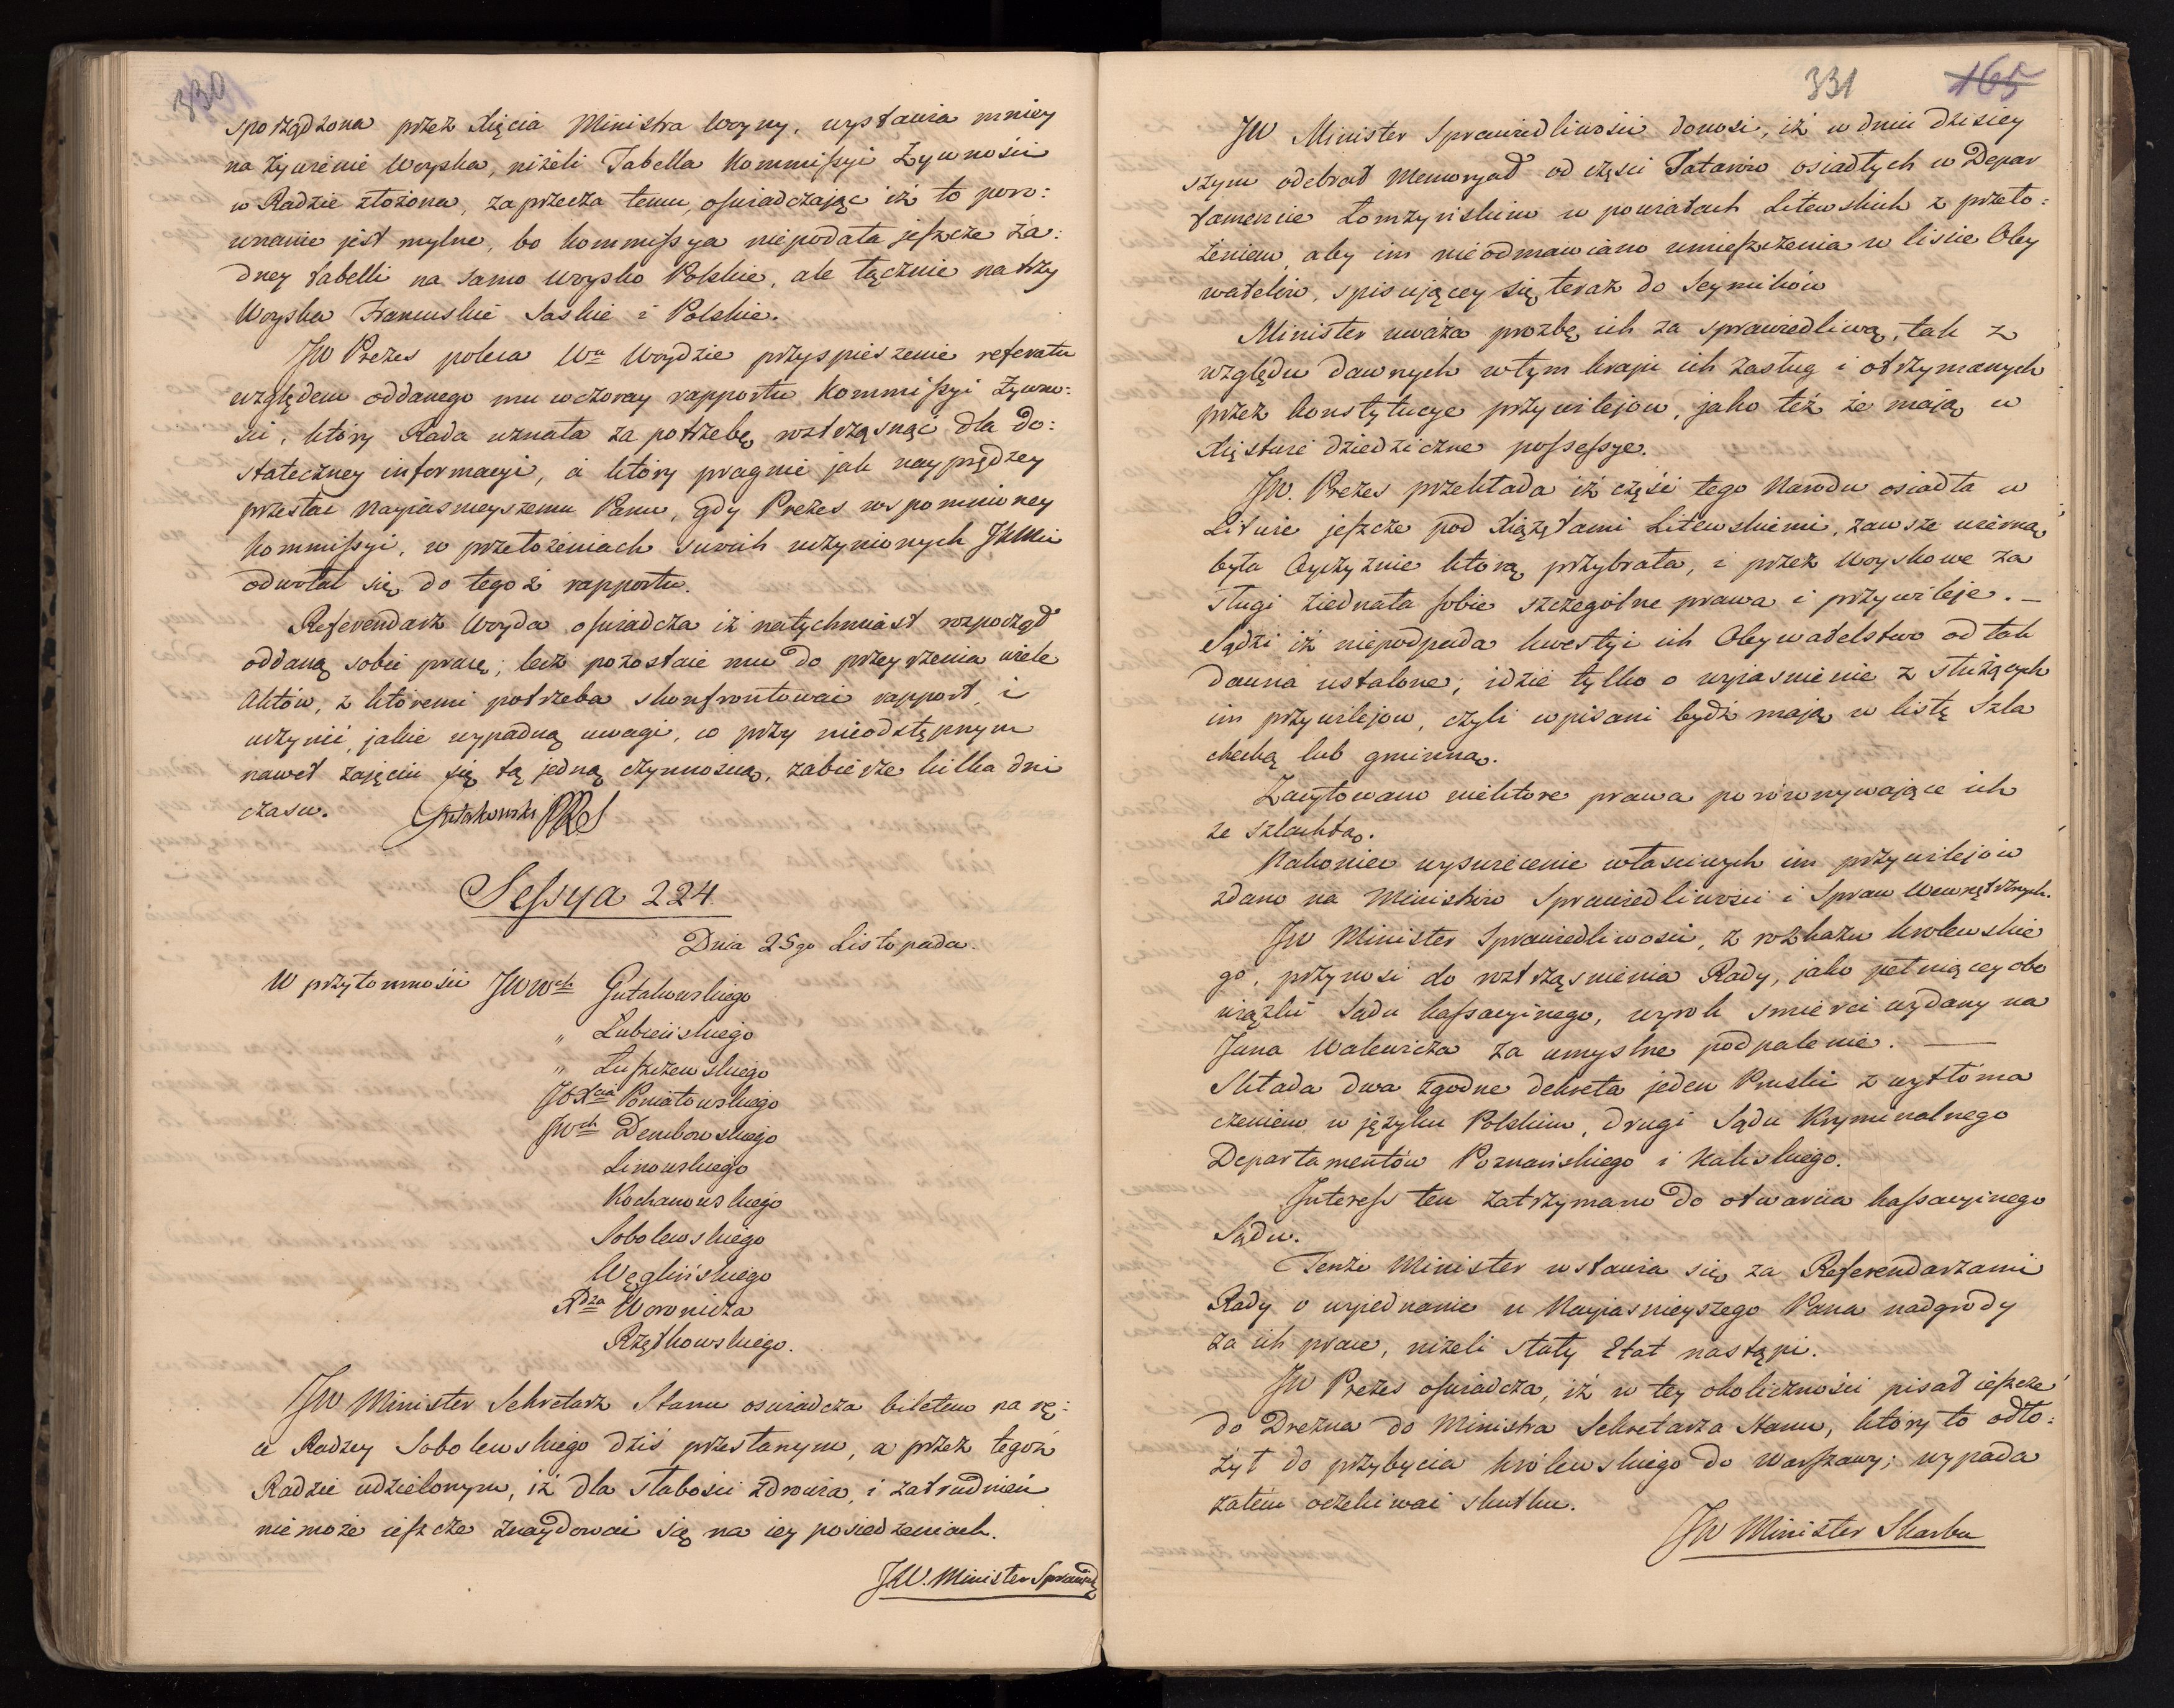 330
sporządzona przez Xięcia Ministra Woyny, wystawia mniey
na żywienie Woyska, niżeli Tabella Kommissyi Żywności
w Radzie złożona, zaprzecza temu, oświadczając iż to poró:
wnanie jest mylne, bo Kommissya niepodała jeszcze ża:
dney tabelli na samo Woysko Polskie, ale łącznie na trzy
Woyska Francuskie Saskie i Polskie.
JW Prezes poleca Wu Woydzie przyspieszenie referatu
względem oddanego mu wczoray rapportu Kommissyi Żywno:
ści, który Rada uznała za potrzebę roztrząsnąć dla do:
stateczney informacyi, a który pragnie jak nayprędzey
przesłać Nayiasnieyszemu Panu, gdy Prezes wspomnioney
Kommissyi, w przełożeniach swoich uczynionych JKMci
odwołał się do tegoż rapportu.
Referendarz Woyda oświadcza iż natychmiast rozpoczął
oddaną sobie pracę; lecz pozostaie mu do przeyrzenia wiele
Aktów, z któremi potrzeba skonfrontować rapport, i
uczynić, jakie wypadną uwagi, co przy nieodstępnym
nawet zajęciu się tą jedną czynnością, zabierze kilka dni
czasu. Gutakowski PRS
Sessya 224.
Dnia 25go Listopada.
W przytomności JWWch Gutakowskiego
„ Łubieńskiego
„ Łuszczewskiego
JOXcia Poniatowskiego
JWch Dembowskiego
Linowskiego
Kochanowskiego
Sobolewskiego
Węglińskiego
Xdza Woronicza
Rzętkowskiego.
JW Minister Sekretarz Stanu oświadcza biletem na rę:
ce Radzcy Sobolewskiego dziś przesłanym, a przez tegoż
Radzie udzielonym, iż dla słabości zdrowia, i zatrudnień
niemoże ieszcze znaydować się na iey posiedzeniach.
JW. Minister Sprawiedl
331 165
JW Minister Sprawiedliwości donosi, iż w dniu dzisiey
szym odebrał Memoryał od części Tatarów osiadłych w Depar
tamencie Łomzyńskim w powiatach Litewskich z przeło:
żeniem, aby im nieodmawiano umieszczenia w liscie Oby
watelów, spisującey się teraz do Seymików
Minister uważa prozbę ich za sprawiedliwą, tak z
względu dawnych w tym kraju ich zasług i otrzymanych
przez konstytucye przywilejow, jako też że mają w
Xięstwie dziedziczne possessye.
JW. Prezes przekłada iż część tego Narodu osiadła w
Litwie jeszcze pod Xiążętami Litewskiemi, zawsze wierną
była Oyczyznie którą przybrała, i przez woyskowe za
sługi ziednała sobie szczególne prawa i przywileje. —
Sądzi iż niepodpada kwestyi ich Obywatelstwo od tak
dawna ustalone; idzie tylko o wyjasnienie z służących
im przywilejow, czyli wpisani bydź mają w listę Szla
checką lub gminną.
Zacytowano niektore prawa porównywające ich
ze szlachtą.
Nakoniec wyswiecenie właściwych im przywilejów
zdano na Ministrów Sprawiedliwości i Spraw Wewnętrznych.
JW Minister Sprawiedliwości, z rozkazu krolewskie
go, przynosi do roztrząsnienia Rady, jako pełniącey obo
wiązki Sądu kassacyinego, wyrok smierci wydany na
Jana Walewicza za umyslne podpalenie. —
Składa dwa zgodne dekreta jeden Pruski z wytłoma
czeniem w języku Polskim, drugi Sądu Kryminalnego
Departamentów Poznańskiego i Kaliskiego.
Interess ten zatrzymano do otwarcia kassacyinego
Sądu.
Tenże Minister wstawia się za Referendarzami
Rady o wyjednanie u Nayiasnieyszego Pana nadgrody
za ich prace, niżeli stały Etat nastąpi.
JW Prezes oświadcza, iż w tey okoliczności pisał ieszcze
do Drezna do Ministra Sekretarza Stanu, który to odło:
żył do przybycia krolewskiego do Warszawy; wypada
zatém oczekiwać skutku.
JW Minister Skarbu